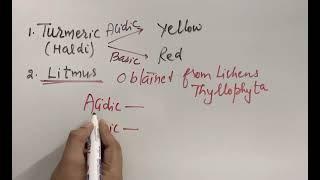 1. Turmeric Acidic → Yellow
(Haldi) Basic → Red
2. Litmus Obtained from Lichens
Thyllophyta
Acidic —
ic —